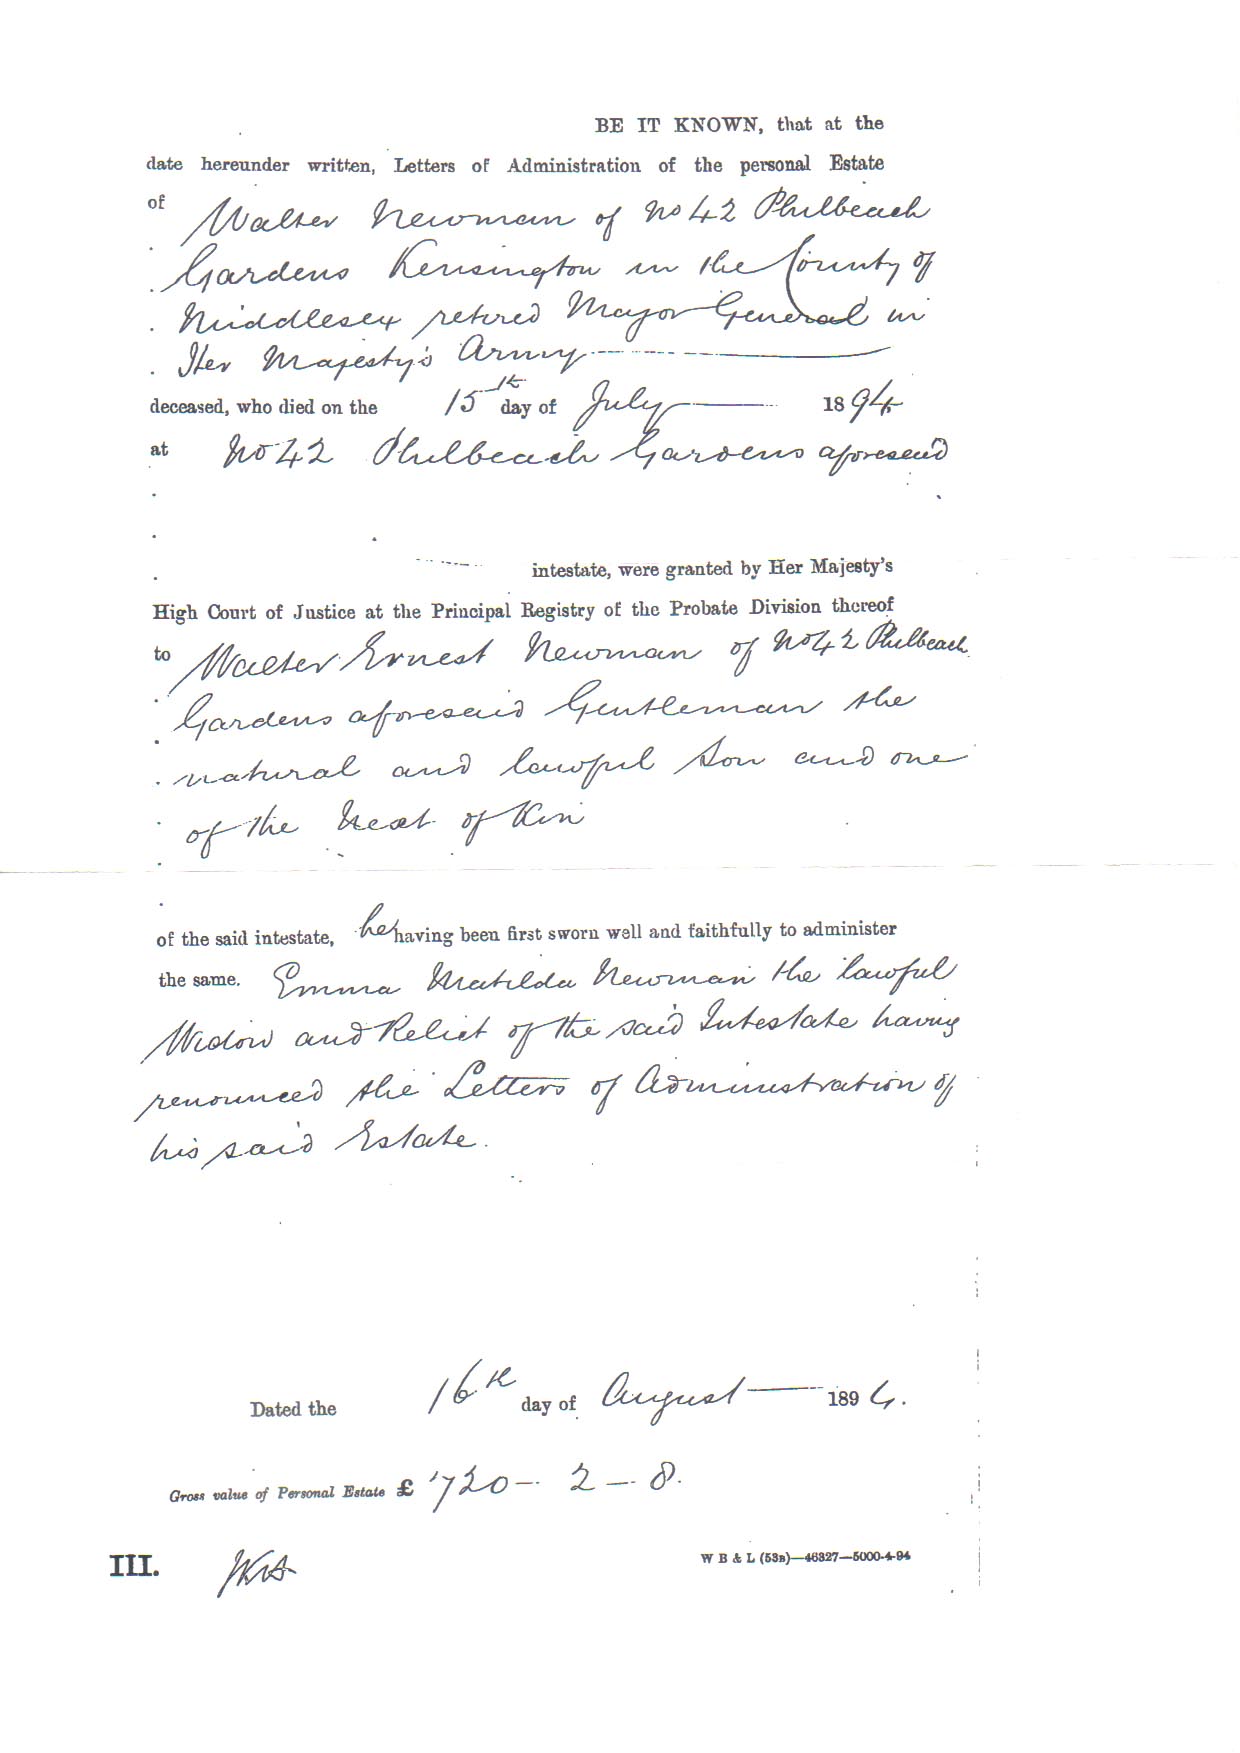 BE IT KNOWN, that at the
date hereunder written, Letters of Administration of the personal Estate
of Walter Newman of No 42 Philbeach
Gardens Kensington in the County of
Middlesex retired Major General in
Her Majesty's Army
deceased, who died on the 15th day of July 1894
at No 42 Philbeach Gardens aforesaid
intestate, were granted by Her Majesty's
High Court of Justice at the Principal Registry of the Probate Division thereof
to Walter Ernest Newman of No 42 Philbeach
Gardens aforesaid Gentleman the
natural and lawful Son and one
of the Next of Kin
of the said intestate, he having been first sworn well and faithfully to administer
the same. Emma Matilda Newman the lawful
Widow and Relict of the said Intestate having
renounced the Letters of Administration of
his said Estate.
Dated the 16th day of August 1894.
Gross value of Personal Estate £720 - 2 - 8.
III.
W B & L (53B)—46327—5000-4-94